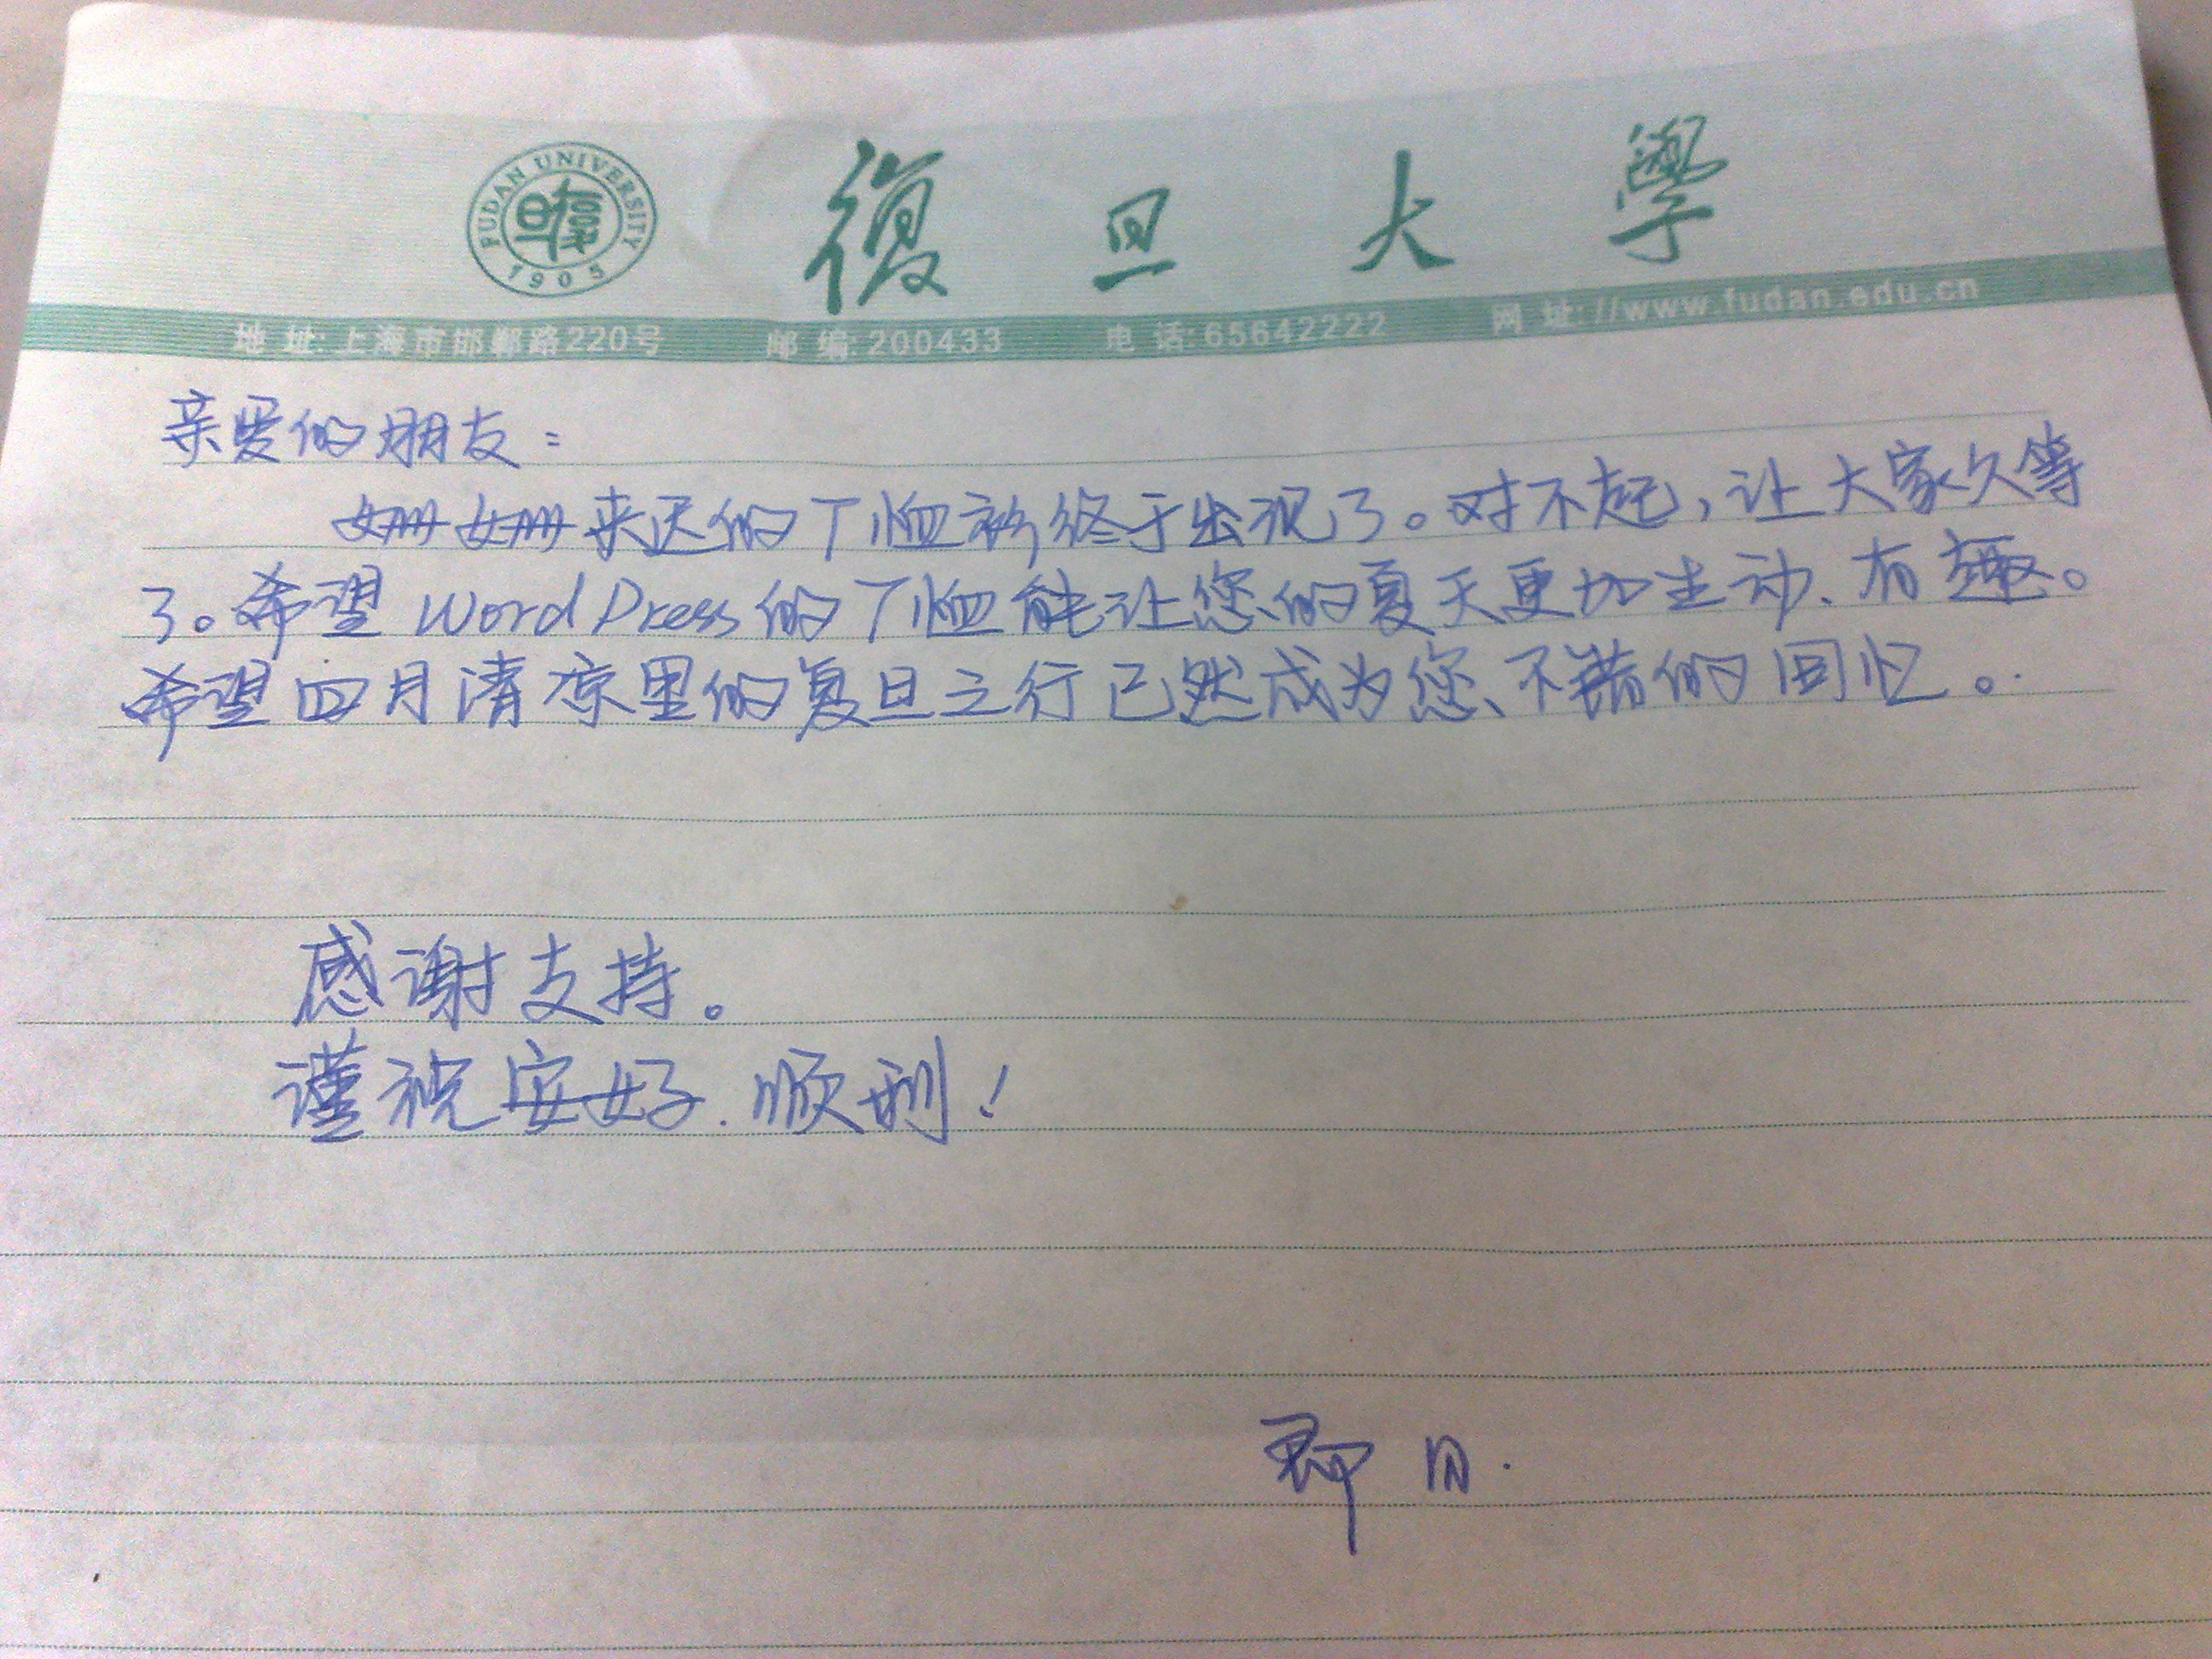 FUDAN UNIVERSITY
1905
復旦大學
地 址:上海市邯郸路220号 邮 编:200433 电 话:65642222 网 址://www.fudan.edu.cn
亲爱的朋友:
姗姗来迟的T恤衫终于出现了。对不起,让大家久等
了。希望WordPress的T恤能让您的夏天更加生动、有趣。
希望四月清凉里的复旦之行已然成为您不错的回忆。
感谢支持。
谨祝安好.顺利!
即日.